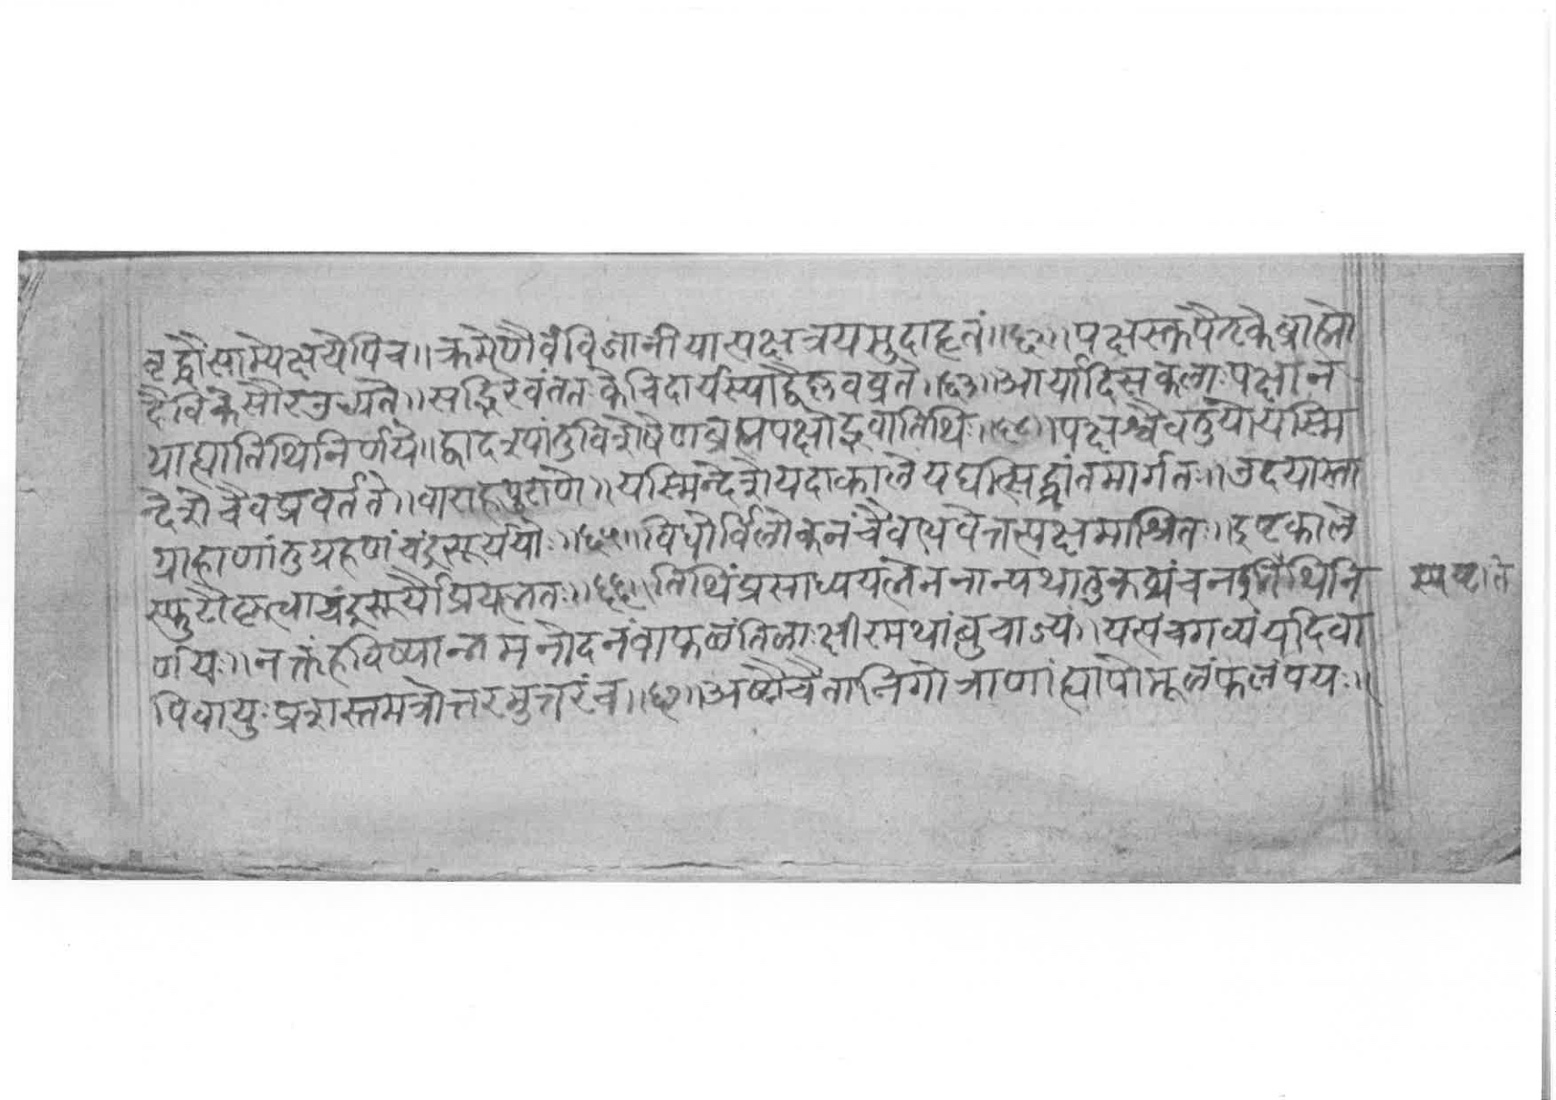 वृद्धौसाम्येक्षयेपिच॥क्रमेणैवंविजानीयात्पक्षत्रयमुदाहृतं॥६२॥पक्षस्तुपैतृकेब्राह्मो
दैविकेसौरउच्यते॥सद्भिरेवंततःकैश्चिदार्यस्याद्वैष्णवव्रते॥६३॥आर्यादिसकलाःपक्षान
ग्राह्यातिथिनिर्णये॥द्वादश्यांतुविशेषेणब्रह्मपक्षोद्भवातिथिः॥६४॥पक्षश्चैवतुयोयस्मि
न्देशेचैवप्रवर्तते॥वाराहपुराणे॥यस्मिन्देशेयदाकालेयद्यत्सिद्धांतमार्गतः॥उदयास्ता
ग्राहाणांतुग्रहणंचंद्रसूर्ययोः॥६५॥विधोर्विलोकनंचैवत्थवेत्तत्पक्षमाश्रितः॥इष्टकाले
स्फुटौकृत्वाचंद्रसूर्यौप्रयत्नतः॥६६॥तिथिंप्रसाध्ययत्नेननान्यथातुकथंचनइतितिथिनि
र्णयः॥नक्तंहविष्यान्नमनोदनंवाफलंतिलाःक्षीरमथांबुचाज्यं॥यत्पंचगव्यंयदिवा
पिवायुःप्रशस्तमत्रोत्तरमुत्तरंच॥६७॥अष्टौचैतानिगोत्राणांह्यापोमूलंफलंपयः॥
स्पष्टति